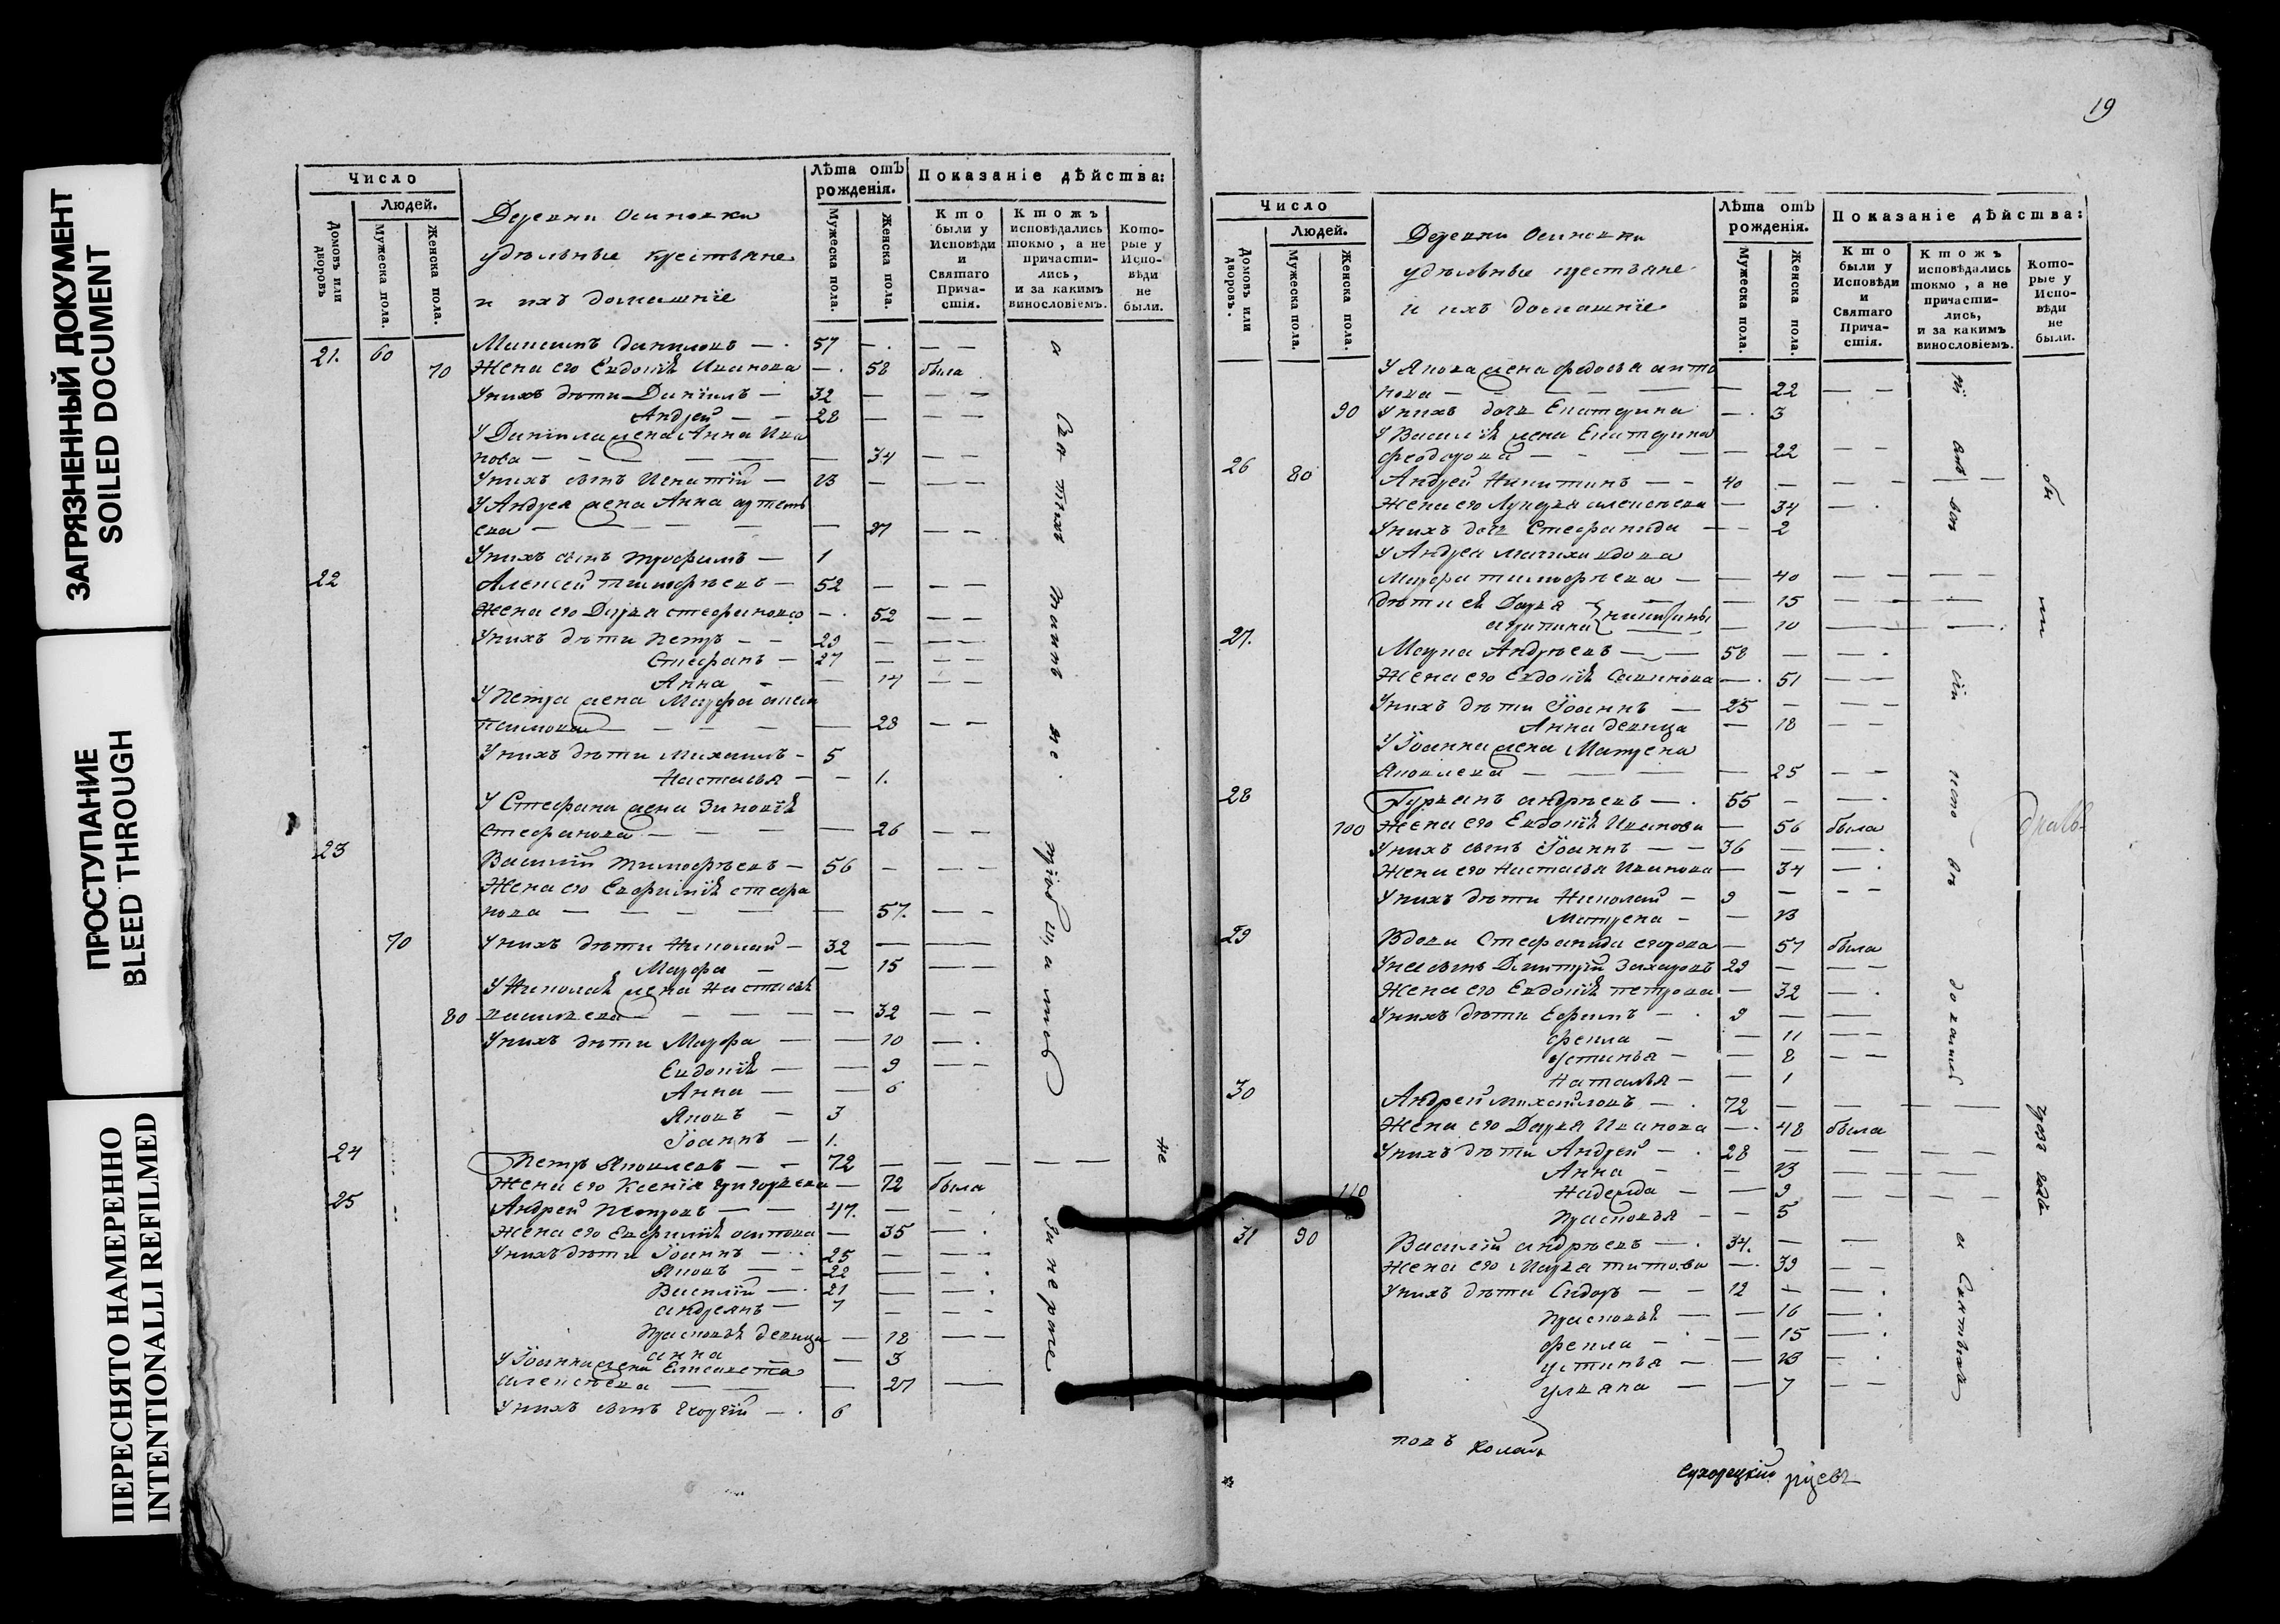 ЗАГРЯЗНЕННЫЙ ДОКУМЕНТ
SOILED DOCUMENT
ПРОСТУПАНИЕ
BLEED THROUGH
ПЕРЕСНЯТО НАМЕРЕННО
INTENTIONALLI REFILMED
Число
Людей.
Домовъ или дворовъ
Мужеска пола.
Женска пола.
Деревни Осиновки
удѣльные крестьяне
и ихъ домашніе
Лѣта отъ рожденія.
Мужеска пола.
Женска пола.
Показаніе дѣйства:
Кто были у Исповѣди и Святаго Прича-стія.
Ктожъ исповѣдались токмо, а не причасти-лись, и за какимъ винословіемъ.
Кото-рые у Испо-вѣди не были.
21. 60 Максимъ Даниловъ — 57 —
70 Жена его Евдокія Иванова — 58 была
У нихъ дѣти Даніилъ — 32 —
Андрей — 28 —
У Даніила жена Анна Ива
нова — 34 —
У нихъ сынъ Игнатій — 13 —
У Андрея жена Анна артемь
ева — 27 —
У нихъ сынъ трофимъ — 1
22 Алексей тимофѣевъ — 52 —
Жена его Дарья стефанова — 52 —
У нихъ дѣти петръ — 29 —
Стефанъ — 27 —
Анна — 14 —
У петра жена Марфа
— 28 —
У нихъ дѣти Михаилъ — 5
Настасья — 1.
У Стефана жена Зиновія
Стефанова — 26 —
23 Василій тимофѣевъ — 56 —
Жена его Евфимія стефа
нова — 57. —
70 У нихъ дѣти Николай — 32 —
Марфа — 15 —
У Николая жена Настасья
80 васильева — 32 —
У нихъ дѣти Марфа — 10 —
Евдокія — 9 —
Анна — 6
Яковъ — 3
Іоаннъ — 1.
24 Петръ Яковлевъ — 72 —
Жена его Ксенія григорьева — 72 была
25 Андрей Петровъ — 47. —
Жена его Евфимія осипова — 35 —
У нихъ дѣти Іоаннъ — 25 —
Яковъ — 22 —
Василій — 21 —
андреянъ — 7 —
Прасковья девица — 18 —
анна — 3
У Іоанна жена Елисавета
алексѣева — 27 —
У нихъ сынъ Георгій — 6
а
не
19
Число
Людей.
Домовъ или дворовъ.
Мужеска пола.
Женска пола.
Деревни Осиновки
удѣльные крестьяне
и ихъ домашніе
Лѣта отъ рожденія.
Мужеска пола.
Женска пола.
Показаніе дѣйства:
Кто были у Исповѣди и Святаго Прича-стія.
Ктожъ исповѣдались токмо, а не причасти-лись, и за какимъ винословіемъ.
Кото-рые у Испо-вѣди не были.
У Якова жена федосья анто
нова — 22 —
90 У нихъ дочь Екатерина — 3
У Василія жена Екатерина
феодорова — 22 —
26 80 Андрей Никитинъ — 40 —
Жена его Лукерья алексѣева — 34 —
У нихъ дочь Стефанида — 2
У Андрея мачиха вдова
Марфа тимофѣева — 40 —
дѣти ея Дарья — 15 —
— 10 —
27. Марка Андрѣевъ — 58 —
Жена его Евдокія Савинова — 51 —
У нихъ дѣти Іоаннъ — 25 —
Анна девица — 18 —
У Іоанна жена Матрена
Яковлева — 25 —
28 Гурьянъ андрѣевъ — 55 —
100 Жена его Евдокія Иванова — 56 была
У нихъ сынъ Іоаннъ — 36 —
Жена его Настасья Иванова — 34 —
У нихъ дѣти Николай — 9 —
Матрена — 13
29 Вдова Стефанида егорова — 57 была
У нея сынъ Димитрій Захаровъ 29 —
Жена его Евдокія петрова — 32 —
У нихъ дѣти Ефимъ — 9 —
фекла — 11 —
устинья — 8 —
Наталья — 1
30 Андрей михайловъ — 72 —
Жена его Дарья Иванова — 48 была
У нихъ дѣти Андрей — 28 —
Анна — 13 —
110 Надежда — 9 —
Прасковья — 5
31 90 Василій андрѣевъ — 34. —
Жена его Марья титова — 39 —
У нихъ дѣти Сидоръ — 12 —
Прасковья — 16 —
фекла — 15 —
устинья — 13 —
ульяна — 7 —